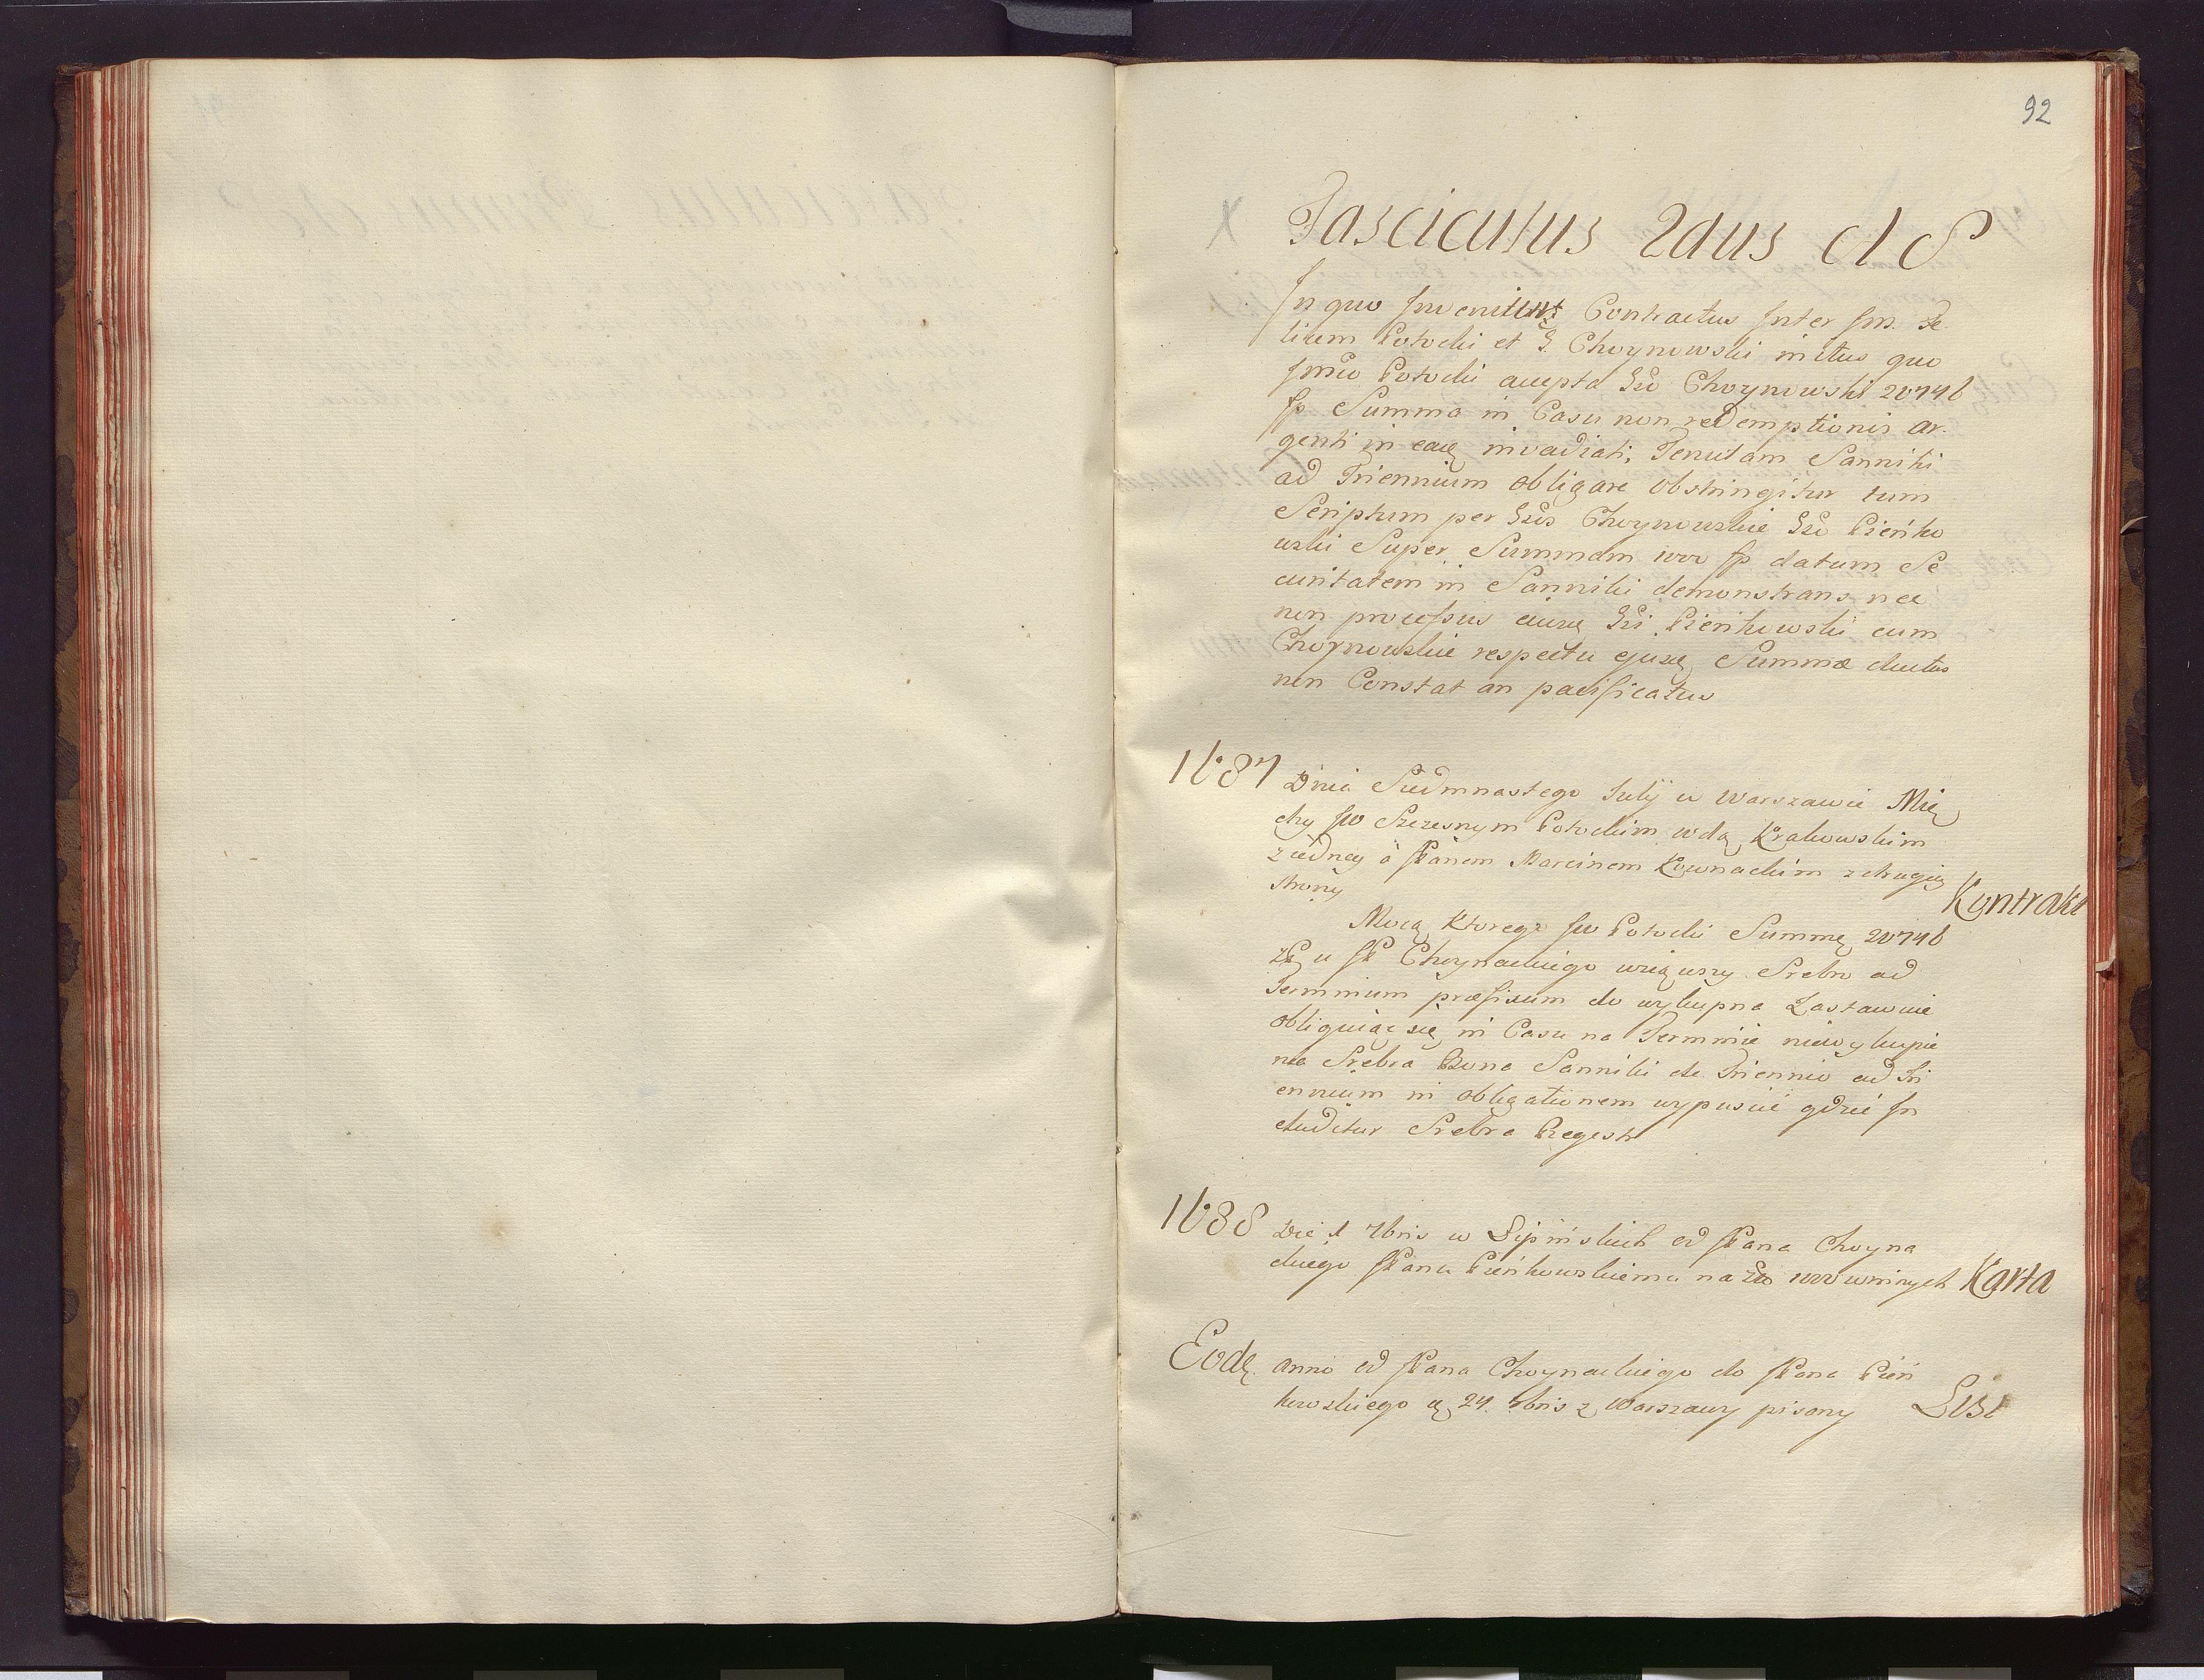 92
X Fasciculus 2dus A S
In quo Invenitur Contractus Inter Im. Fe
licem Potocki et G. Choynowski initus quo
Imo Potocki accepta Gso Choynowski 20746
fp Summa in Casu non redemptionis ar
genti in eaę invadiati, Tenutam Sanniki
ad Triennium obligare obstringitur tum
Scriptum per Gsos Choynowskie Gso Pieńko
wski Super Summam 1000 fp datum Se
curitatem in Sanniki demonstrans nec
non processus eiusę Gsi Pieńkowski cum
Choynowskie respectu ejusę Summæ ductus
non Constat an pacificatus
1687 Dnia Siedmnastego Julÿ w Warszawie Mię
dzy JW Szczesnym Potockim wdą Krakowskim
z iedney a JPanem Marcinem Kownackim z drugiey
strony
Kontrakt
Mocą Ktorego JW Potocki Summę 20746
zł u JP Choynackiego wziąwszy Srebro ad
Terminum præfixum do wykupna Zastawuie
obliguiąc się in Casu na Terminie niewykupie
nia Srebra Dobra Sanniki de Triennio ad Tri
ennium in obligationem wypuscić gdzie In
cluditur Srebra Regestr
1688 Die 1 7bris w Lipińskich od JPana Choyna
ckiego JPanu Pieńkowskiemu na zło 1000 winnych Karta
Eodę anno od JPana Choynackiego do JPana Pień
kowskiego ą 24. 8bris z Warszawy pisany List